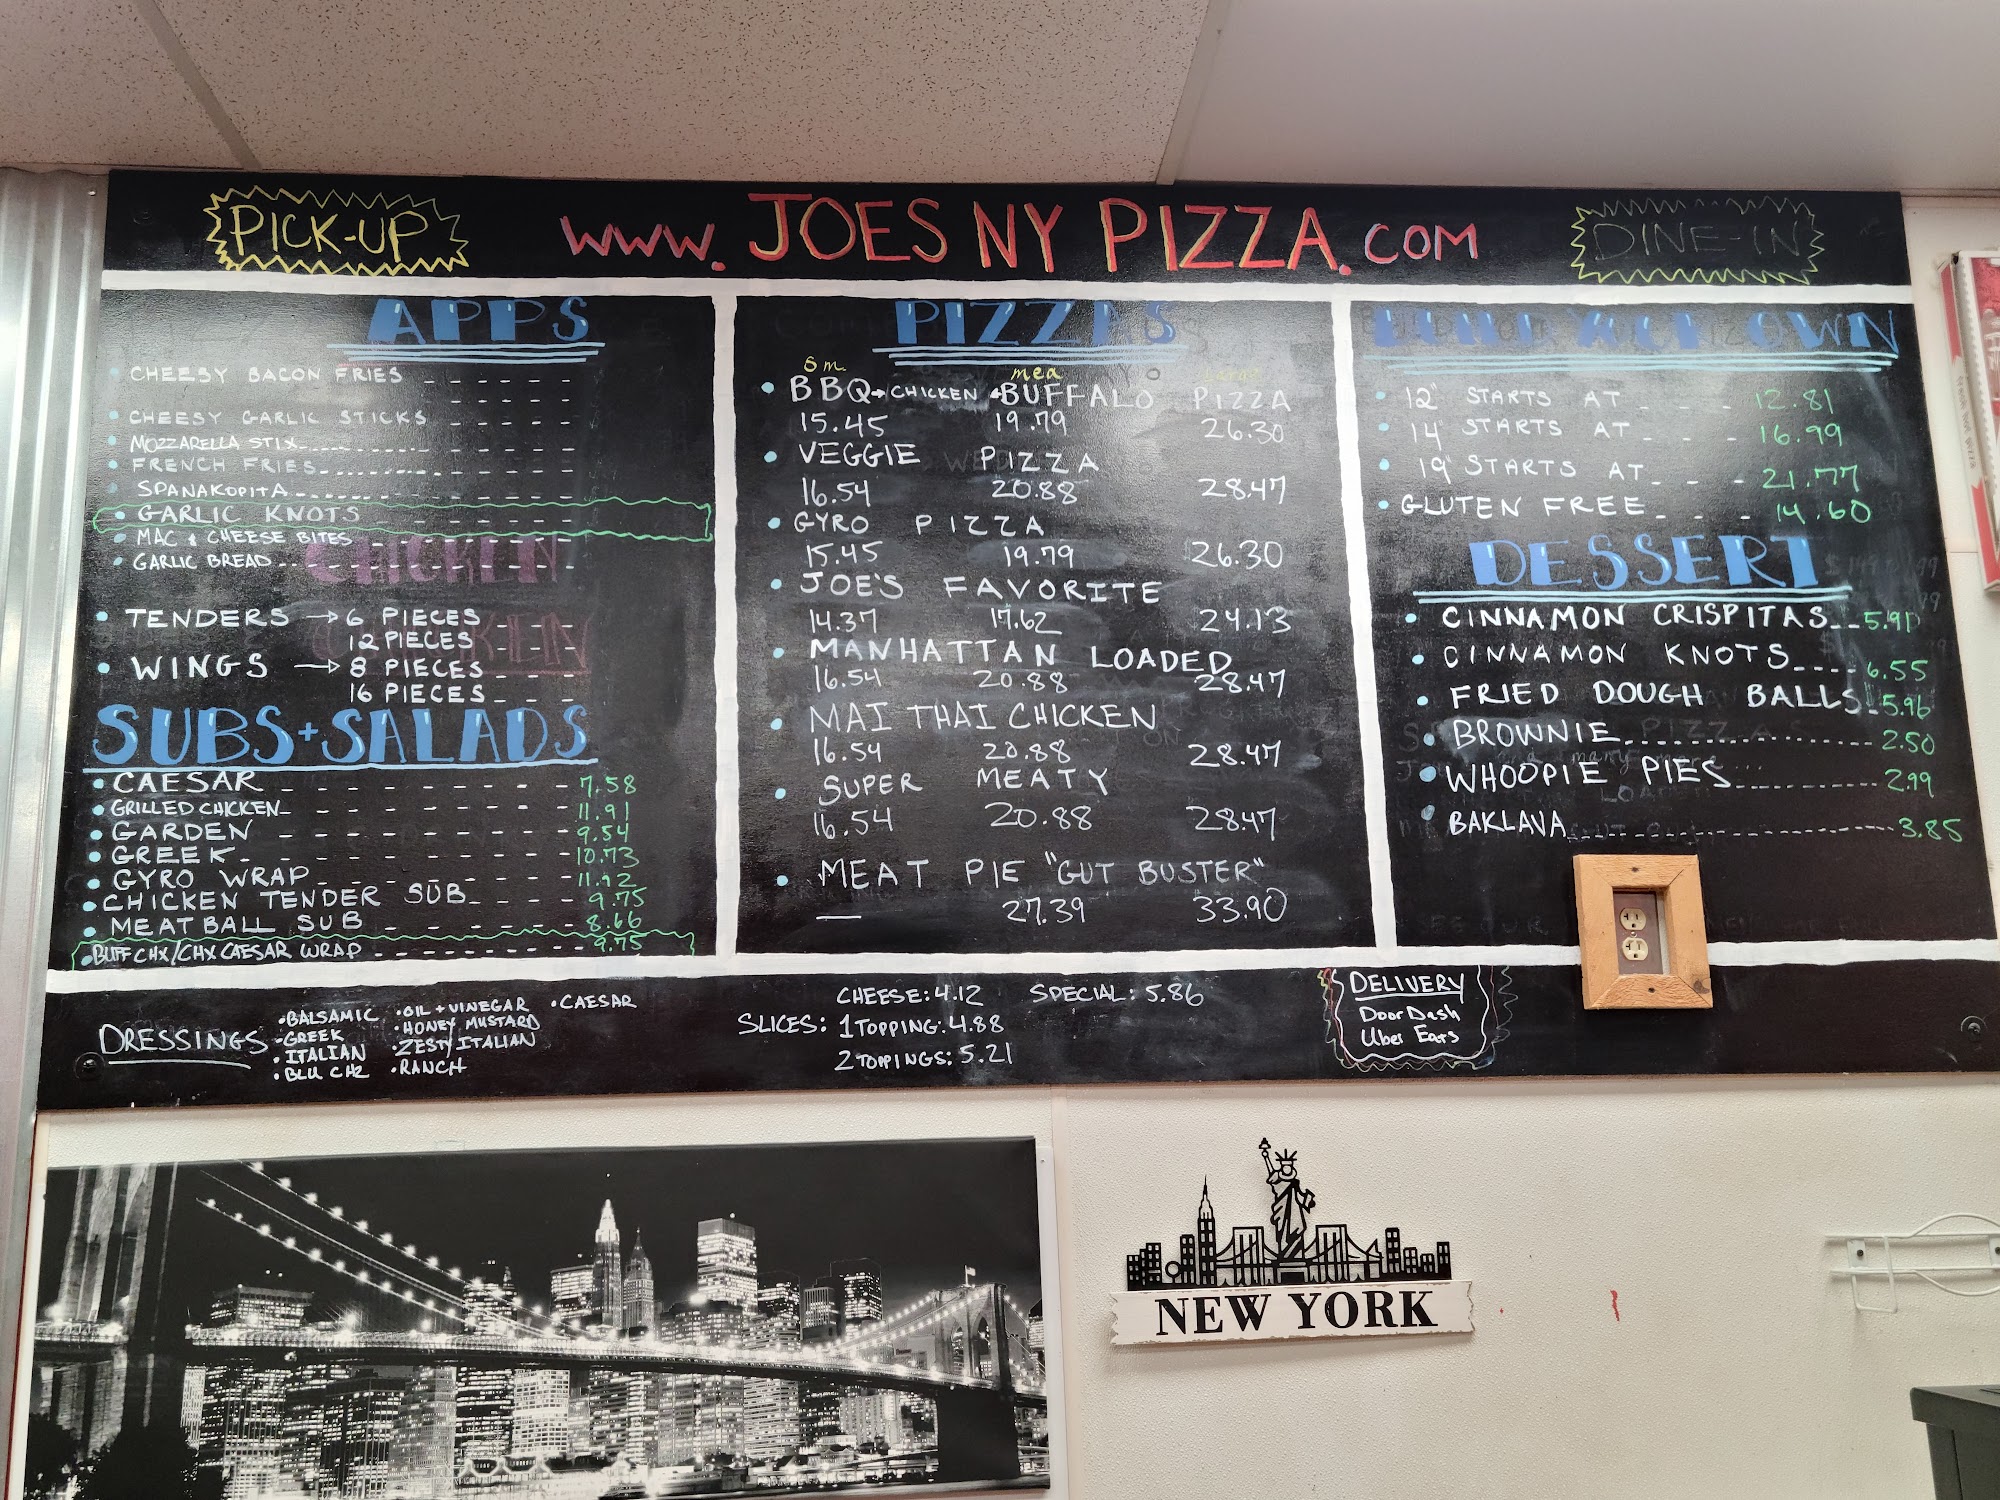 PICK-UP
WWW.JOESNYPIZZA.COM
DINE-IN
APPS
CHEESY BACON FRIES
CHEESY GARLIC STICKS
MOZZARELLA STIX
FRENCH FRIES
SPANAKOPITA
GARLIC KNOTS
MAC & CHEESE BITES
GARLIC BREAD
CHICKEN
TENDERS → 6 PIECES
12 PIECES
WINGS → 8 PIECES
16 PIECES
SUBS + SALADS
CAESAR 7.58
GRILLED CHICKEN 11.91
GARDEN 9.54
GREEK 10.73
GYRO WRAP 11.92
CHICKEN TENDER SUB 9.75
MEATBALL SUB 8.66
BUFF CHX/CHX CAESAR WRAP 9.75
PIZZAS
Sm. med Large
BBQ CHICKEN BUFFALO PIZZA
15.45 19.79 26.30
VEGGIE PIZZA
16.54 20.88 28.47
GYRO PIZZA
15.45 19.79 26.30
JOE'S FAVORITE
14.37 17.62 24.13
MANHATTAN LOADED
16.54 20.88 28.47
MAI THAI CHICKEN
16.54 20.88 28.47
SUPER MEATY
16.54 20.88 28.47
MEAT PIE "GUT BUSTER"
— 27.39 33.90
BUILD YOUR OWN
12" STARTS AT 12.81
14" STARTS AT 16.99
19" STARTS AT 21.77
GLUTEN FREE 14.60
DESSERT
CINNAMON CRISPITAS 5.91
CINNAMON KNOTS 6.55
FRIED DOUGH BALLS 5.96
BROWNIE 2.50
WHOOPIE PIES 2.99
BAKLAVA 3.85
DRESSINGS
• BALSAMIC • OIL + VINEGAR • CAESAR
• GREEK • HONEY MUSTARD
• ITALIAN • ZESTY ITALIAN
• BLU CHZ • RANCH
CHEESE: 4.12 SPECIAL: 5.86
SLICES: 1 TOPPING: 4.88
2 TOPPINGS: 5.21
DELIVERY
DoorDash
Uber Eats
NEW YORK